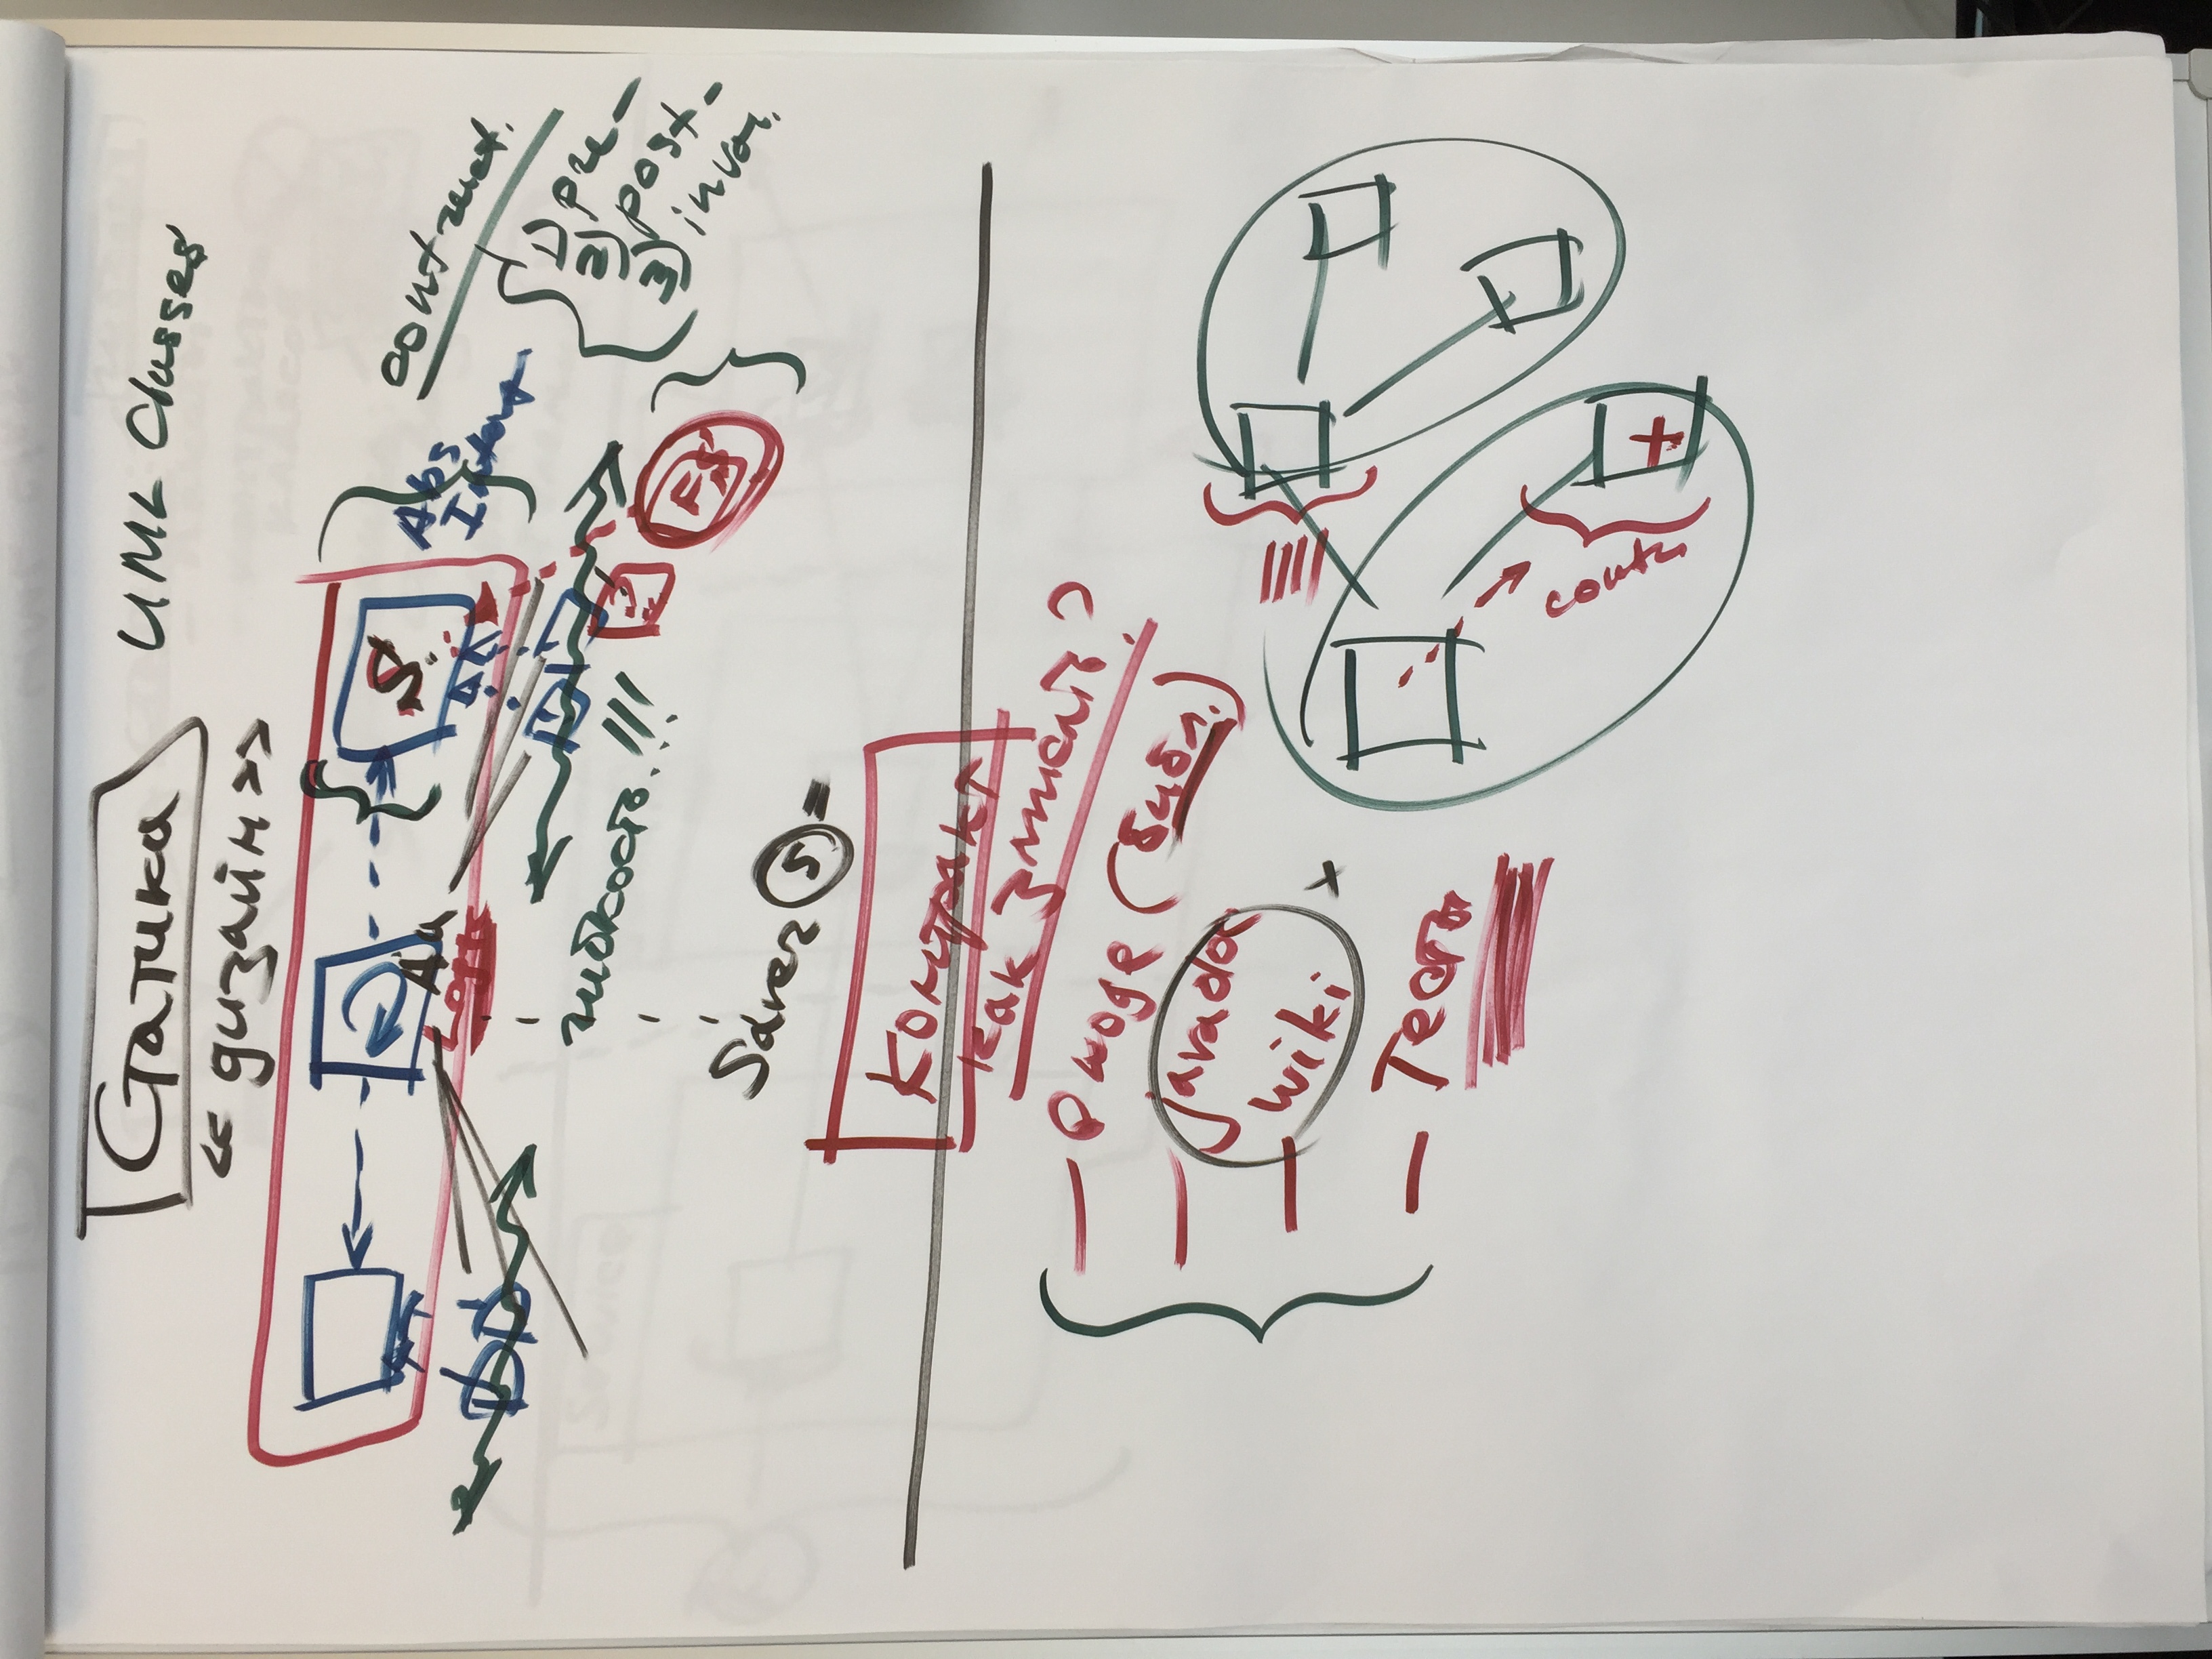 Статика
UML Classes
« дизайн »
S
Abs
Inter
contract.
1) pre-
2) post-
3) invar.
гибкость!!!
FS
Saver S =
Контракт
как описать?
— В коде (библ.)
— javadoc
— wiki
— Тесты
contr
+